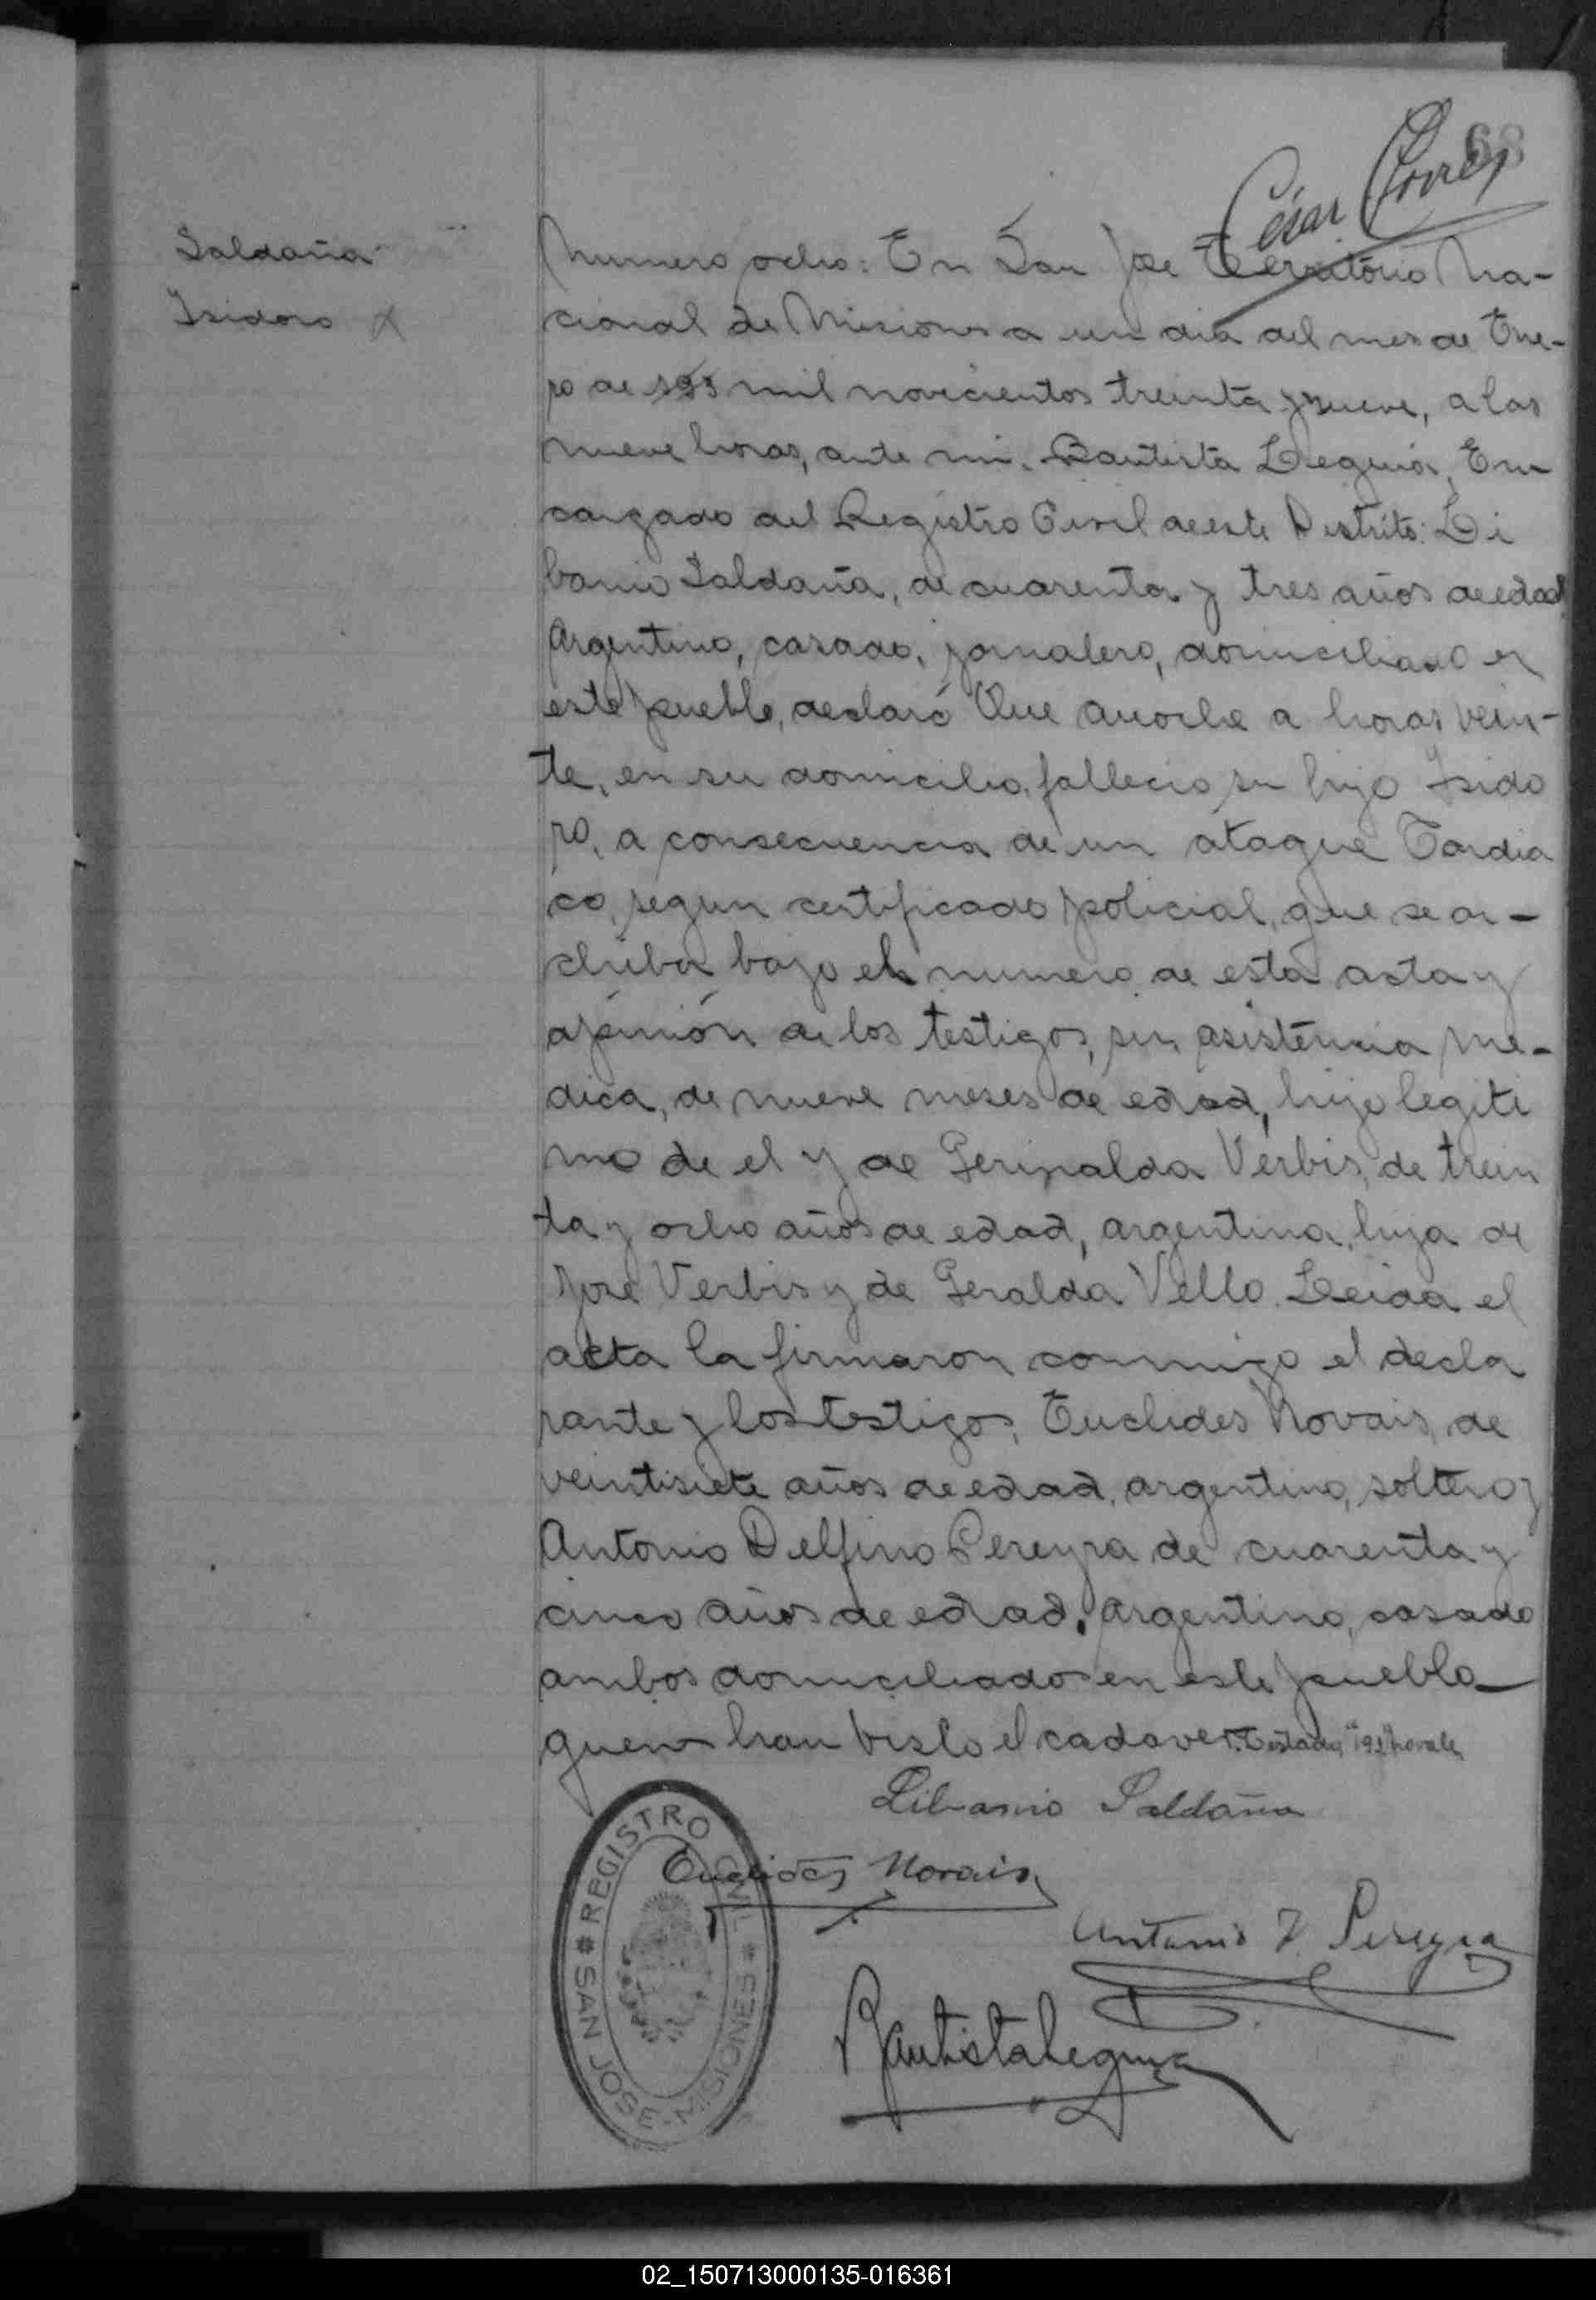 68
César Torres
Saldaña
Isidoro X
Numero ocho: En San Jose Territorio Na-
cional de Misiones a un dia del mes de Ene-
ro de 193 mil novecientos treinta y nueve, a las
nueve horas, ante mi. Bautista Leguia, En
cargado del Registro Civil de este Distrito: Li
banio Saldaña, de cuarenta y tres años de edad
Argentino, casado, jornalero, domiciliado en
este pueblo, declaró Que anoche a horas vein-
te, en su domicilio, fallecio su hijo Isido
ro, a consecuencia de un ataque Cardia
co, segun certificado policial, que se ar-
chiba bajo el numero de esta acta y
opinión de los testigos, sin asistencia me-
dica, de nueve meses de edad, hijo legiti
mo de el y de Verbis, de trein
ta y ocho años de edad, argentina, hija de
Jose Verbis y de Geralda Vello. Leida el
acta la firmaron conmigo el decla
rante y los testigos, Euclides Novais, de
veintisiete años de edad, argentino, soltero y
Antonio Delfino Pereyra de cuarenta y
cinco años de edad, argentino, casado
ambos domiciliados en este pueblo
quienes han visto el cadaver. Testado "193" no vale
Libanio Saldaña
Euclides Novais
Antonio D. Pereyra
Bautista Leguia
REGISTRO CIVIL * SAN JOSE - MISIONES *
02_150713000135-016361